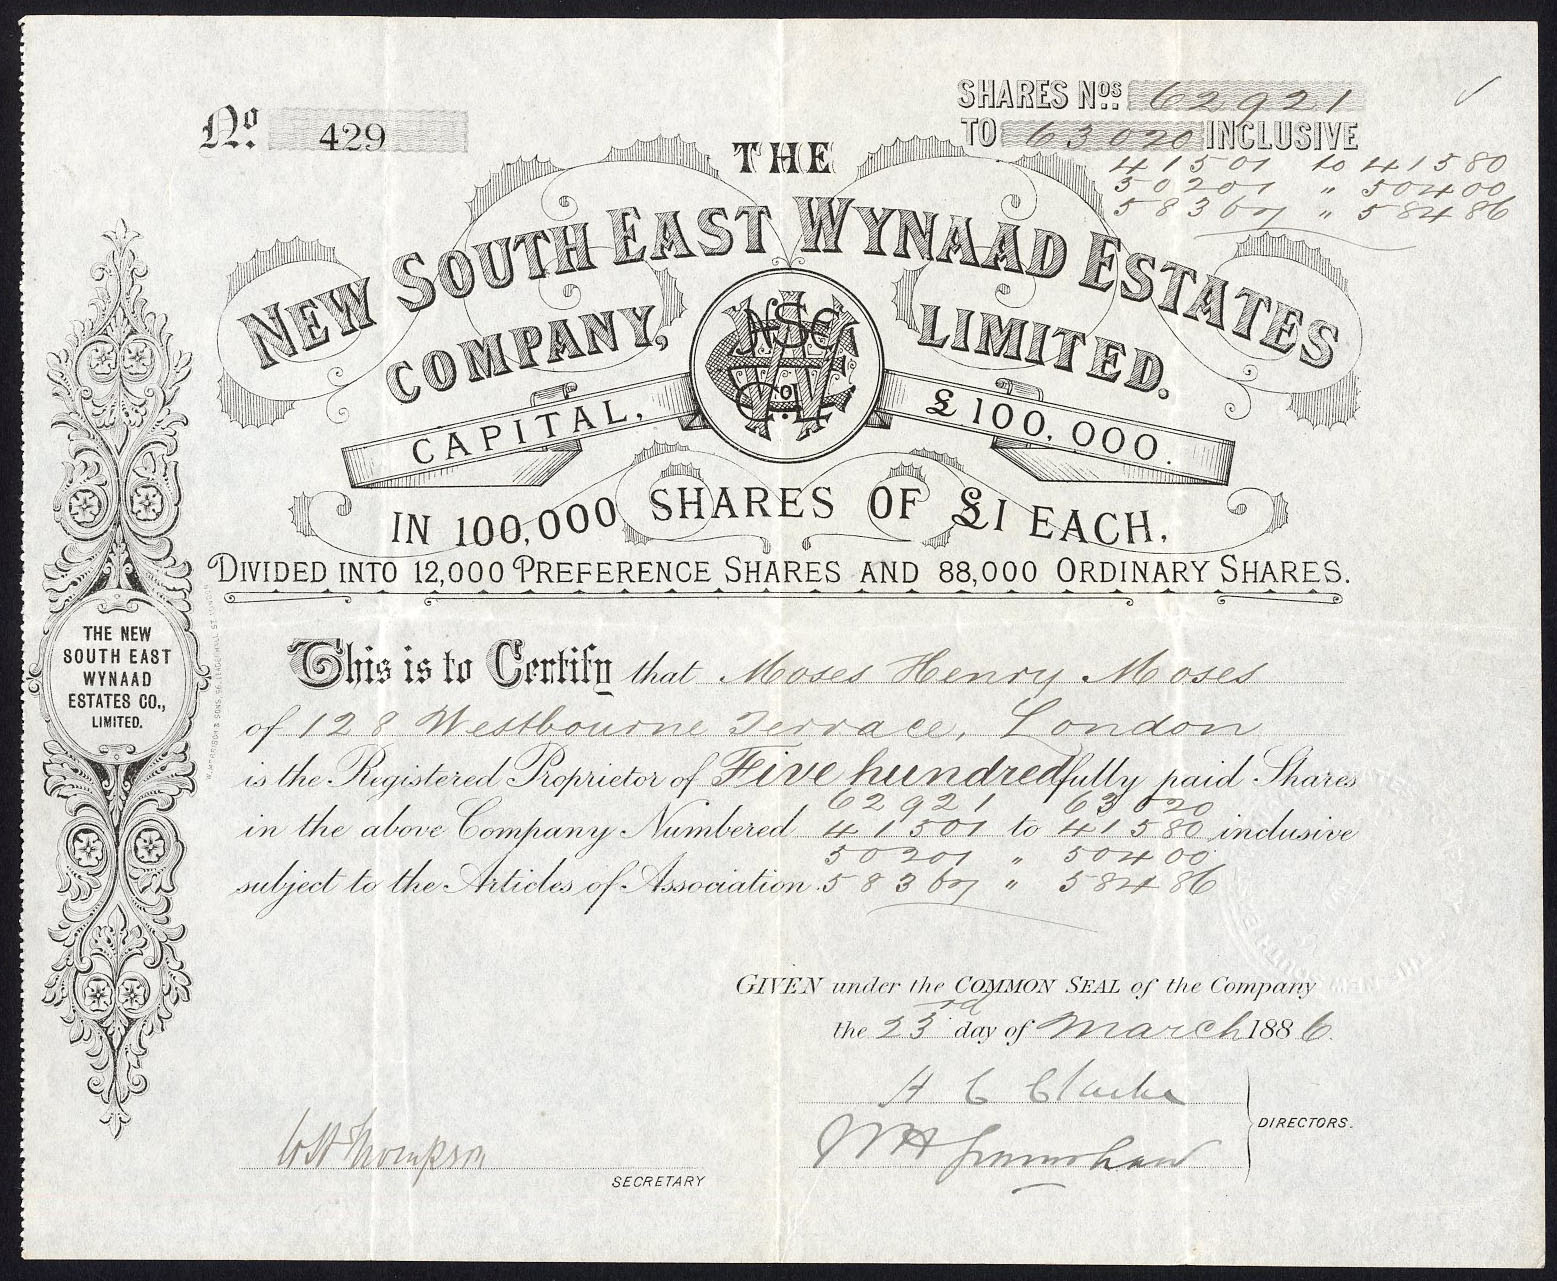 No. 429
SHARES Nos. 62921
TO 63020 INCLUSIVE
41501 to 41580
50201 " 50400
58367 " 58486
THE
NEW SOUTH EAST WYNAAD ESTATES
COMPANY, LIMITED.
NSE
W
Co. L
CAPITAL, £100,000.
IN 100,000 SHARES OF £1 EACH,
DIVIDED INTO 12,000 PREFERENCE SHARES AND 88,000 ORDINARY SHARES.
THE NEW
SOUTH EAST
WYNAAD
ESTATES CO.,
LIMITED.
& SONS, LEADENHALL ST. LONDON
This is to Certify that Moses Henry Moses
of 128 Westbourne Terrace, London
is the Registered Proprietor of Five hundred fully paid Shares
62921 63020
in the above Company Numbered 41501 to 41580 inclusive
50201 " 50400
subject to the Articles of Association. 58367 " 58486
GIVEN under the COMMON SEAL of the Company
the 23rd day of March 1886.
H C Clarke
W H Grimshaw
DIRECTORS.
W H Thompson
SECRETARY